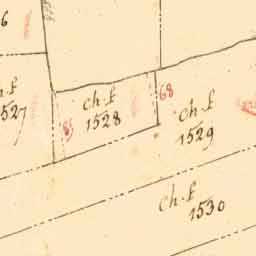 6
ch.f
1527
ch.f
1528
68
ch.f
1529
ch.f
1530